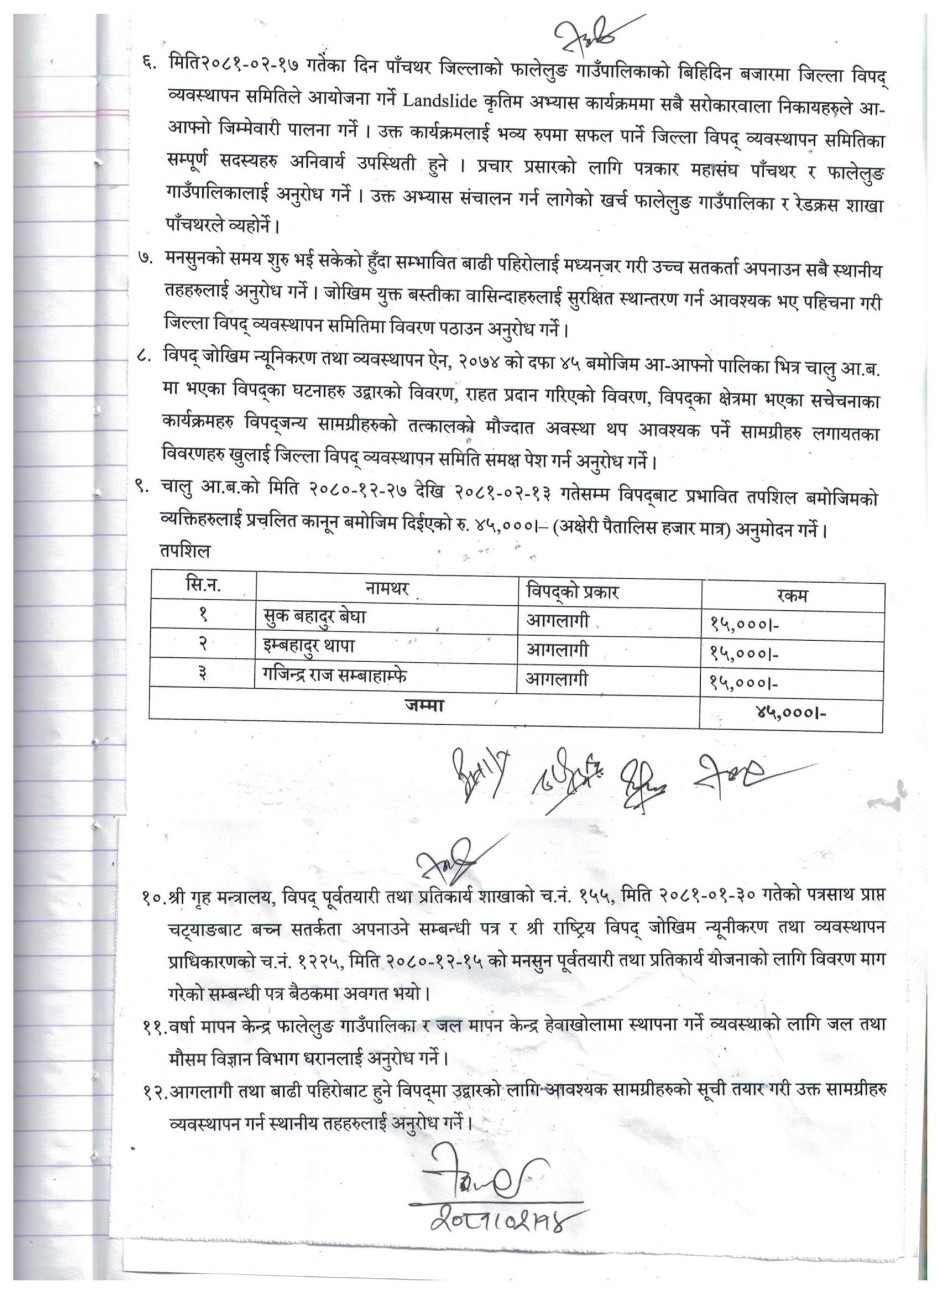 ६. मिति२०८१-०२-१७ गतेका दिन पाँचथर जिल्लाको फालेलुङ गाउँपालिकाको बिहिदिन बजारमा जिल्ला विपद्
व्यवस्थापन समितिले आयोजना गर्ने Landslide कृतिम अभ्यास कार्यक्रममा सबै सरोकारवाला निकायहरुले आ-
आफ्नो जिम्मेवारी पालना गर्ने । उक्त कार्यक्रमलाई भव्य रुपमा सफल पार्ने जिल्ला विपद् व्यवस्थापन समितिका
सम्पूर्ण सदस्यहरु अनिवार्य उपस्थिती हुने । प्रचार प्रसारको लागि पत्रकार महासंघ पाँचथर र फालेलुङ
गाउँपालिकालाई अनुरोध गर्ने । उक्त अभ्यास संचालन गर्न लागेको खर्च फालेलुङ गाउँपालिका र रेडक्रस शाखा
पाँचथरले व्यहोर्ने ।
७. मनसुनको समय शुरु भई सकेको हुँदा सम्भावित बाढी पहिरोलाई मध्यनजर गरी उच्च सतकर्ता अपनाउन सबै स्थानीय
तहहरुलाई अनुरोध गर्ने । जोखिम युक्त बस्तीका वासिन्दाहरुलाई सुरक्षित स्थान्तरण गर्न आवश्यक भए पहिचना गरी
जिल्ला विपद् व्यवस्थापन समितिमा विवरण पठाउन अनुरोध गर्ने ।
८. विपद् जोखिम न्यूनिकरण तथा व्यवस्थापन ऐन, २०७४ को दफा ४५ बमोजिम आ-आफ्नो पालिका भित्र चालु आ.ब.
मा भएका विपद्का घटनाहरु उद्वारको विवरण, राहत प्रदान गरिएको विवरण, विपद्का क्षेत्रमा भएका सचेचनाका
कार्यक्रमहरु विपद्जन्य सामग्रीहरुको तत्कालको मौज्दात अवस्था थप आवश्यक पर्ने सामग्रीहरु लगायतका
विवरणहरु खुलाई जिल्ला विपद् व्यवस्थापन समिति समक्ष पेश गर्न अनुरोध गर्ने ।
९. चालु आ.ब.को मिति २०८०-१२-२७ देखि २०८१-०२-१३ गतेसम्म विपद्बाट प्रभावित तपशिल बमोजिमको
व्यक्तिहरुलाई प्रचलित कानून बमोजिम दिईएको रु. ४५,०००।– (अक्षेरी पैतालिस हजार मात्र) अनुमोदन गर्ने ।
तपशिल
सि.न. नामथर विपद्को प्रकार रकम
१ सुक बहादुर बेघा आगलागी १५,०००।-
२ इम्बहादुर थापा आगलागी १५,०००।-
३ गजिन्द्र राज सम्बाहाम्फे आगलागी १५,०००।-
जम्मा ४५,०००।-
१०.श्री गृह मन्त्रालय, विपद् पूर्वतयारी तथा प्रतिकार्य शाखाको च.नं. १५५, मिति २०८१-०१-३० गतेको पत्रसाथ प्राप्त
चट्याङबाट बच्न सतर्कता अपनाउने सम्बन्धी पत्र र श्री राष्ट्रिय विपद् जोखिम न्यूनीकरण तथा व्यवस्थापन
प्राधिकारणको च.नं. १२२५, मिति २०८०-१२-१५ को मनसुन पूर्वतयारी तथा प्रतिकार्य योजनाको लागि विवरण माग
गरेको सम्बन्धी पत्र बैठकमा अवगत भयो ।
११.वर्षा मापन केन्द्र फालेलुङ गाउँपालिका र जल मापन केन्द्र हेवाखोलामा स्थापना गर्ने व्यवस्थाको लागि जल तथा
मौसम विज्ञान विभाग धरानलाई अनुरोध गर्ने ।
१२.आगलागी तथा बाढी पहिरोबाट हुने विपद्मा उद्वारको लागि आवश्यक सामग्रीहरुको सूची तयार गरी उक्त सामग्रीहरु
व्यवस्थापन गर्न स्थानीय तहहरुलाई अनुरोध गर्ने ।
२०८१।०२।१४